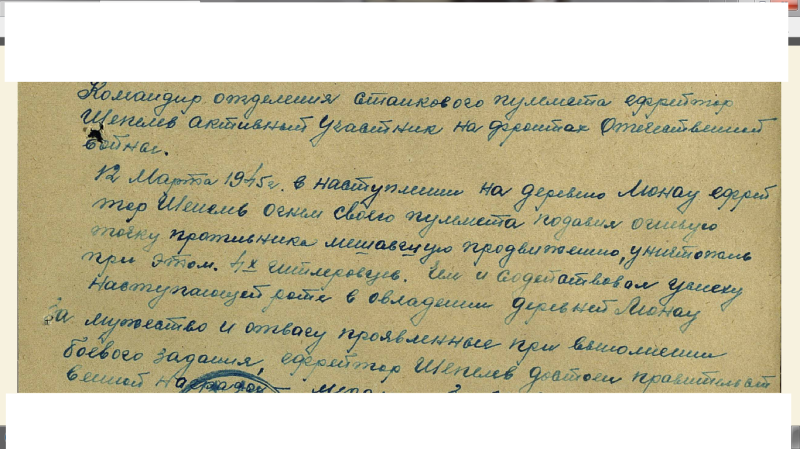 Командир отделения станкового пулемета ефрейтор
Шепелев активный участник на фронтах Отечественной
войны.
12 Марта 1945г. в наступлении на деревню Монау ефрей
тор Шепелев огнем своего пулемета подавил огневую
точку противника мешавшую продвижению, уничтожив
при этом. 4х гитлеровцев. Чем и содействовал успеху
наступающей роте в овладении деревней Монау
За мужество и отвагу проявленные при выполнении
боевого задания, ефрейтор Шепелев достоен правительст
венной награды